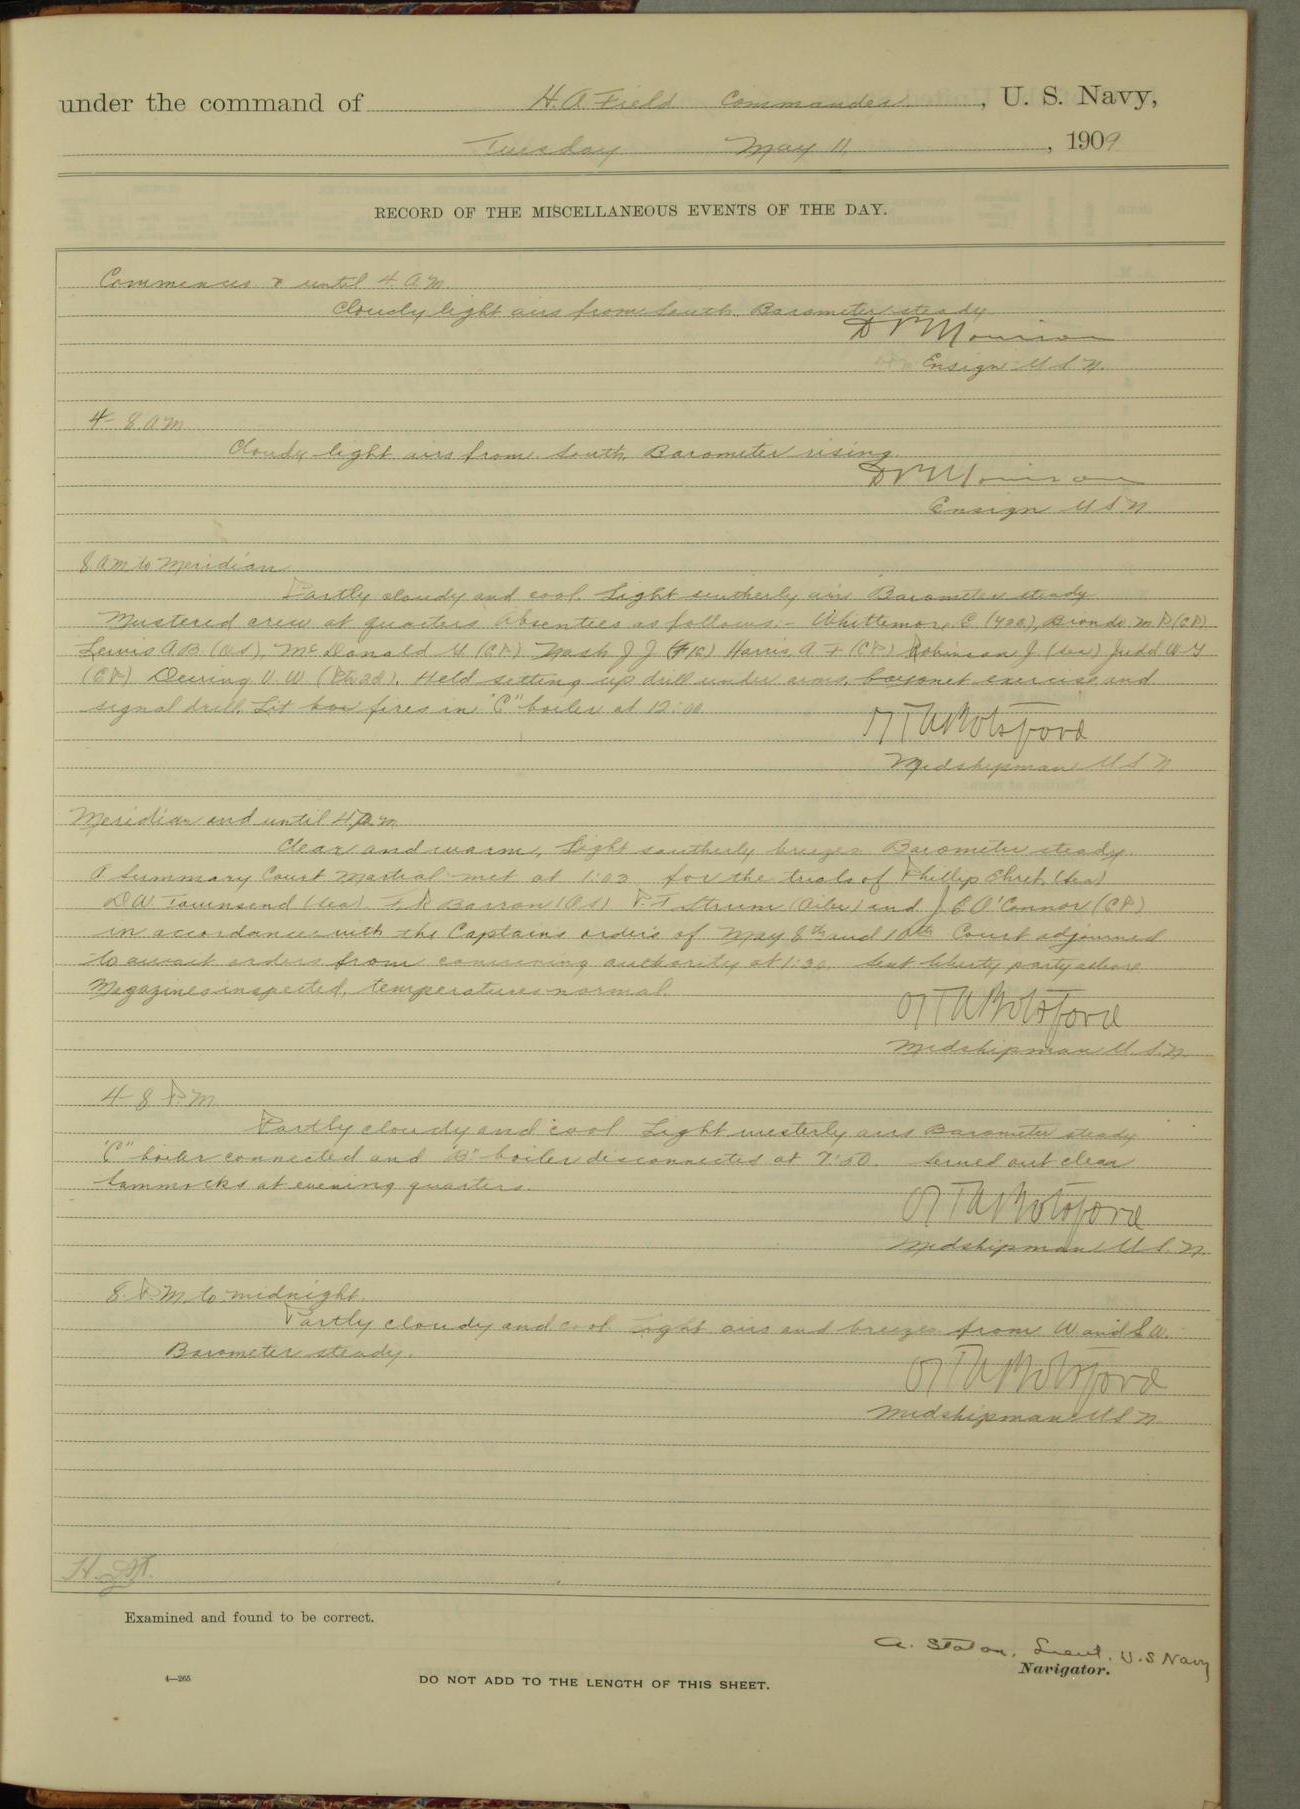 under the command of H. A Field Commander, U. S. Navy,
Tuesday May 11, 1909
RECORD OF THE MISCELLANEOUS EVENTS OF THE DAY.
Commences & until 4 A.M.
Cloudy light airs from South. Barometer steady
Ensign U S N.
4-8 AM
Cloudy light airs from South. Barometer rising.
Ensign U S N
8 AM to Meridian
Partly cloudy and cool. Light southerly airs Barometer steady
Mustered crew at quarters Absentees as follows:- Whittemore. C
Lewis A B (OS), McDonald G (CP) Nash J J Harris A F (CP) Robinson J (Sea) Judd W G
(CP) Deering O W. Held setting up drill under arms, bayonet exercise and
signal drill. Lit fires in "C" boiler at 12:00
Midshipman U S N
Meridian and until 4 P.M.
Clear and warm, Light southerly breezes Barometer steady.
A Summary Court Martial met at 1:03 for the trials of Phillip Ehret (Sea)
D W Townsend (Sea) F. R Barron (OS) P. F Strum (Oiler) and J C O'Connor (CP)
in accordance with the Captain's orders of May 8th and 10th Court adjourned
to await orders from convening authority at 1:30. Sent liberty party ashore
Magazines inspected, temperatures normal.
Midshipman U. S. N.
4-8 P.M
Partly cloudy and cool Light westerly airs Barometer steady
"C" boiler connected and "B" boiler disconnected at 7:50. Served out clean
hammocks at evening quarters.
Midshipman U S. N.
8. P.M. to midnight.
Partly cloudy and cool Light airs and breezes from W and S W.
Barometer steady.
Midshipman U S N
Examined and found to be correct.
A. Staton, Lieut. U.S Navy
Navigator.
4—265
DO NOT ADD TO THE LENGTH OF THIS SHEET.